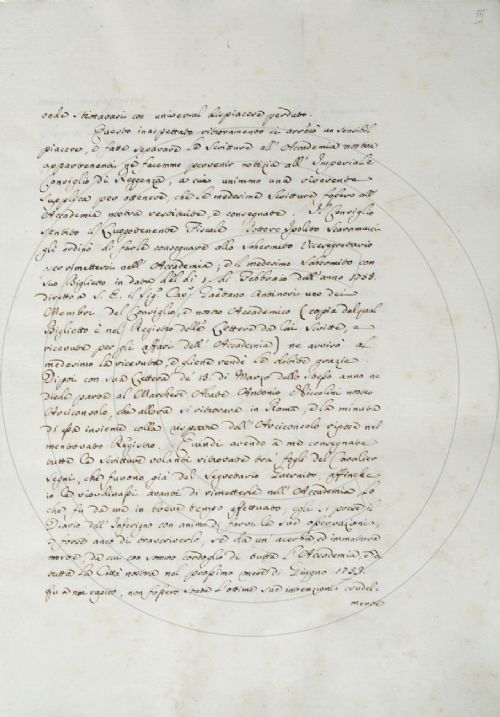 III
onde stimavasi con universal dispiacere perduto.
Questo inaspettato ritrovamento ci arrecò un sensibil
piacere, e fatte separare le Scritture all'Accademia nostra
appartenenti ne facemmo pervenir notizia all'Imperiale
Consiglio di Reggenza, a cui unimmo una riverente
supplica per ottenere, che le medesime Scritture fossero all'
Accademia nostra restituite, e consegnate. Il Consiglio
sentito il Luogotenente Fiscale Dottore Ipolito Scaramucci
gli ordinò di farle consegnare allo Schermito Vicesegretario
per rimettersi nell'Accademia; e il medesimo Schermito con
suo Biglietto in data del dì 1. di Febbraio dell'anno 1758.
diretto a S. E. il Sig. Cav. Gaetano Antinori uno dei
Membri del Consiglio, e nostro Accademico (copia del qual
Biglietto è nel Registro delle Lettere da lui scritte, e
ricevute per gli affari dell'Accademia) ne avvisò al
medesimo la ricevuta, e gliene rendè le debite grazie.
Dipoi con sua Lettera de' 18. di Marzo dello stesso anno ne
diede parte al Marchese Abate Antonio Niccolini nostro
Arciconsolo, che allora si ritrovava in Roma, e la minuta
di essa insieme colla risposta dell'Arciconsolo ripose nel
mentovato Registro. Quindi avendo a me consegnate
tutte le scritture volanti ritrovate tra' fogli del Cavalier
Segni, che furono già del Segretario Inferito affinchè
io le riordinassi avanti di rimetterle nell'Accademia, lo
che fu da me in breve tempo effettuato, egli si prese il
Diario dell'Inferigno con animo di farvi le sue osservazioni,
e forse anco di trascriverlo, se da un acerba, e immatura
morte da cui con sommo cordoglio di tutta l'Accademia, e di
tutta la Città nostra nel prossimo mese di Giugno 1758.
fu a noi rapito, non fossero state l'ottime sue intenzioni crudel-
mente